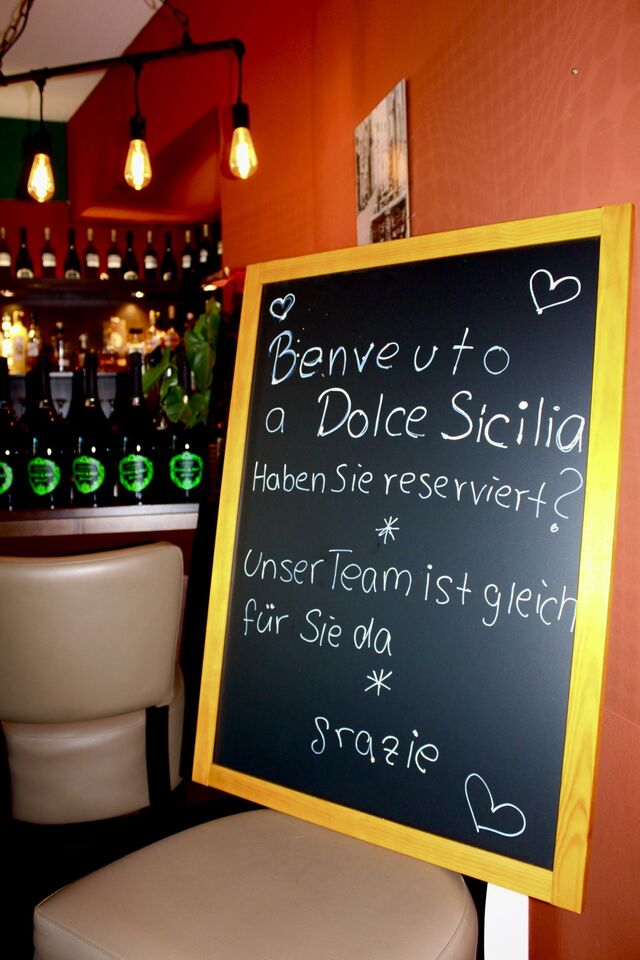 Benveuto
a Dolce Sicilia
Haben Sie reserviert?
*
Unser Team ist gleich
für Sie da
*
grazie